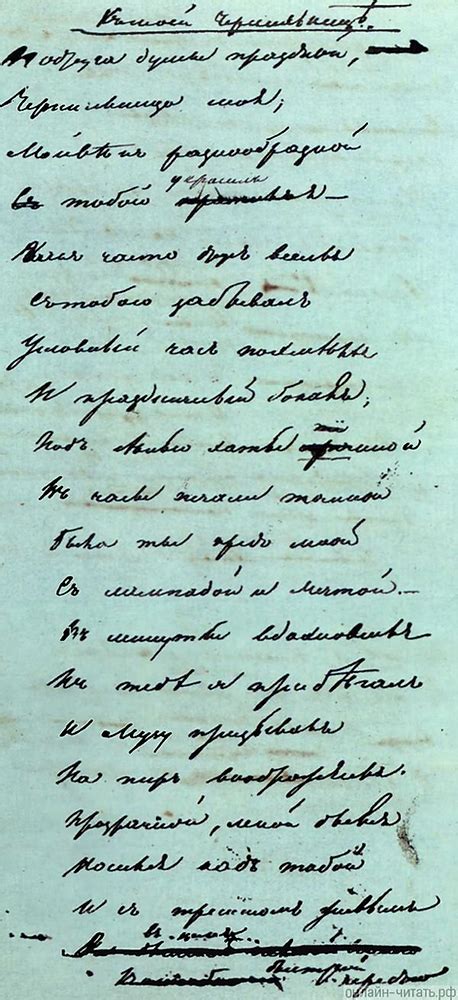 Къ моей Чернильницѣ.
Подруга думы праздной,
Чернильница моя;
Мой вѣкъ разнообразной
украсилъ
тобой
Какъ часто другъ веселья
Съ тобою забывалъ
Условный часъ похмелья
И праздничный бокалъ;
Подъ сѣнью хаты
Въ часы печали томной
Была ты предо мной
Съ лампадой и мечтой. —
Въ минуты вдохновенья
Къ тебѣ я прибѣгалъ
И Музу призывалъ
На пиръ воображенья.
Прозрачной, легкой дымъ
Носился надъ тобой
И съ трепетомъ живымъ
Въ немъ
быстрой
онлайн-читать.рф